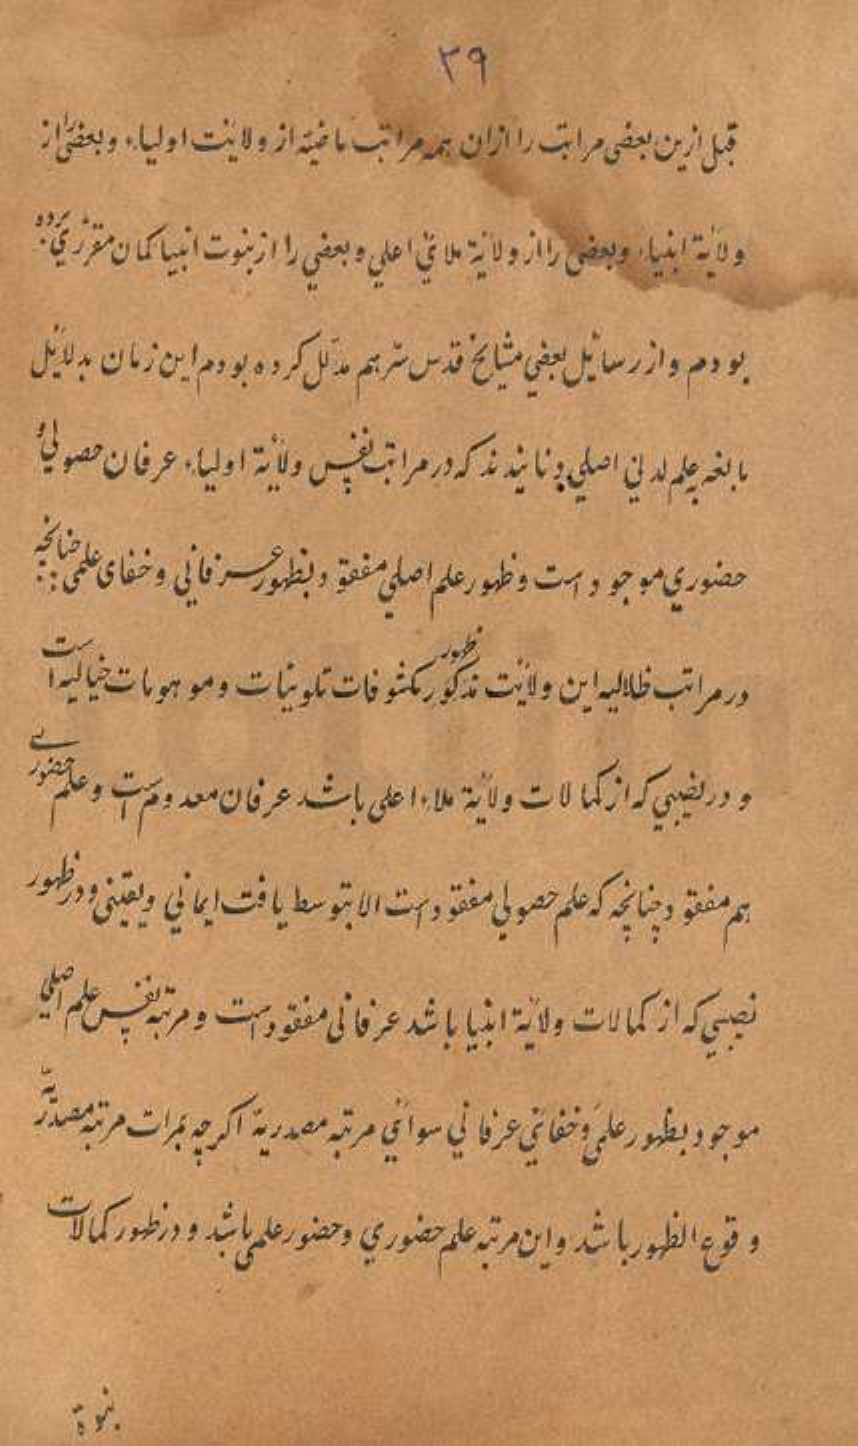 ٣٩
قبل ازین بعضی مراتب را ازان همه مراتب ماضیّه از ولائت اولیاء و بعضی را از
ولایة انبیاء و بعضی را از ولایة ملائی اعلی و بعضی را از نبوت انبیا کمان مقرری برده
بودم و از رسائیل بعضی مشایخ قدس سرهم مدلل کرده بودم این زمان بدلائیل
بالغه بعلم لدنی اصلی دنانیدند که در مراتب نفس ولایة اولیاء عرفان حصولی و
حضوری موجود است و ظهور علم اصلی مفقود بظهور عرفانی و خفای علمی چنانچه
در مراتب ظلالیه این ولائت مذکور ظهور مکشوفات تلوینات و موهومات خیالیه است
و در نصیبی که از کمالات ولایة ملاء اعلی باشد عرفان معدوم است و علم حضوری
هم مفقود چنانچه که علم حصولی مفقود است الا بتوسط یافت ایمانی و یقینی و در ظهور
نصیبی که از کمالات ولایة انبیا باشد عرفانی مفقود است و مرتبه نفس علم اصلی
موجود بظهور علمی و خفائی عرفانی سوائی مرتبه مصدریة اکرچه بمرات مرتبه مصدریه
وقوع الظهور باشد و این مرتبه علم حضوری و حضور علمی باشد و در ظهور کمالات
نبوة